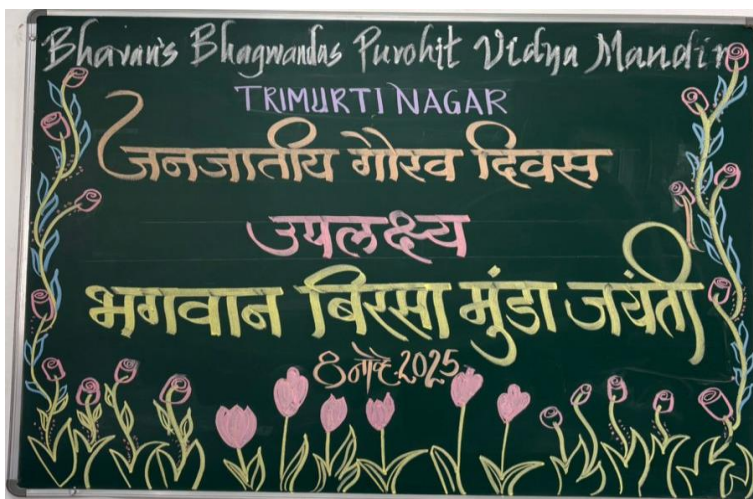 Bhavan's Bhagwandas Purohit Vidya Mandir
TRIMURTI NAGAR
जनजातीय गौरव दिवस
उपलक्ष्य
भगवान बिरसा मुंडा जयंती
8 नोव्हे. 2025